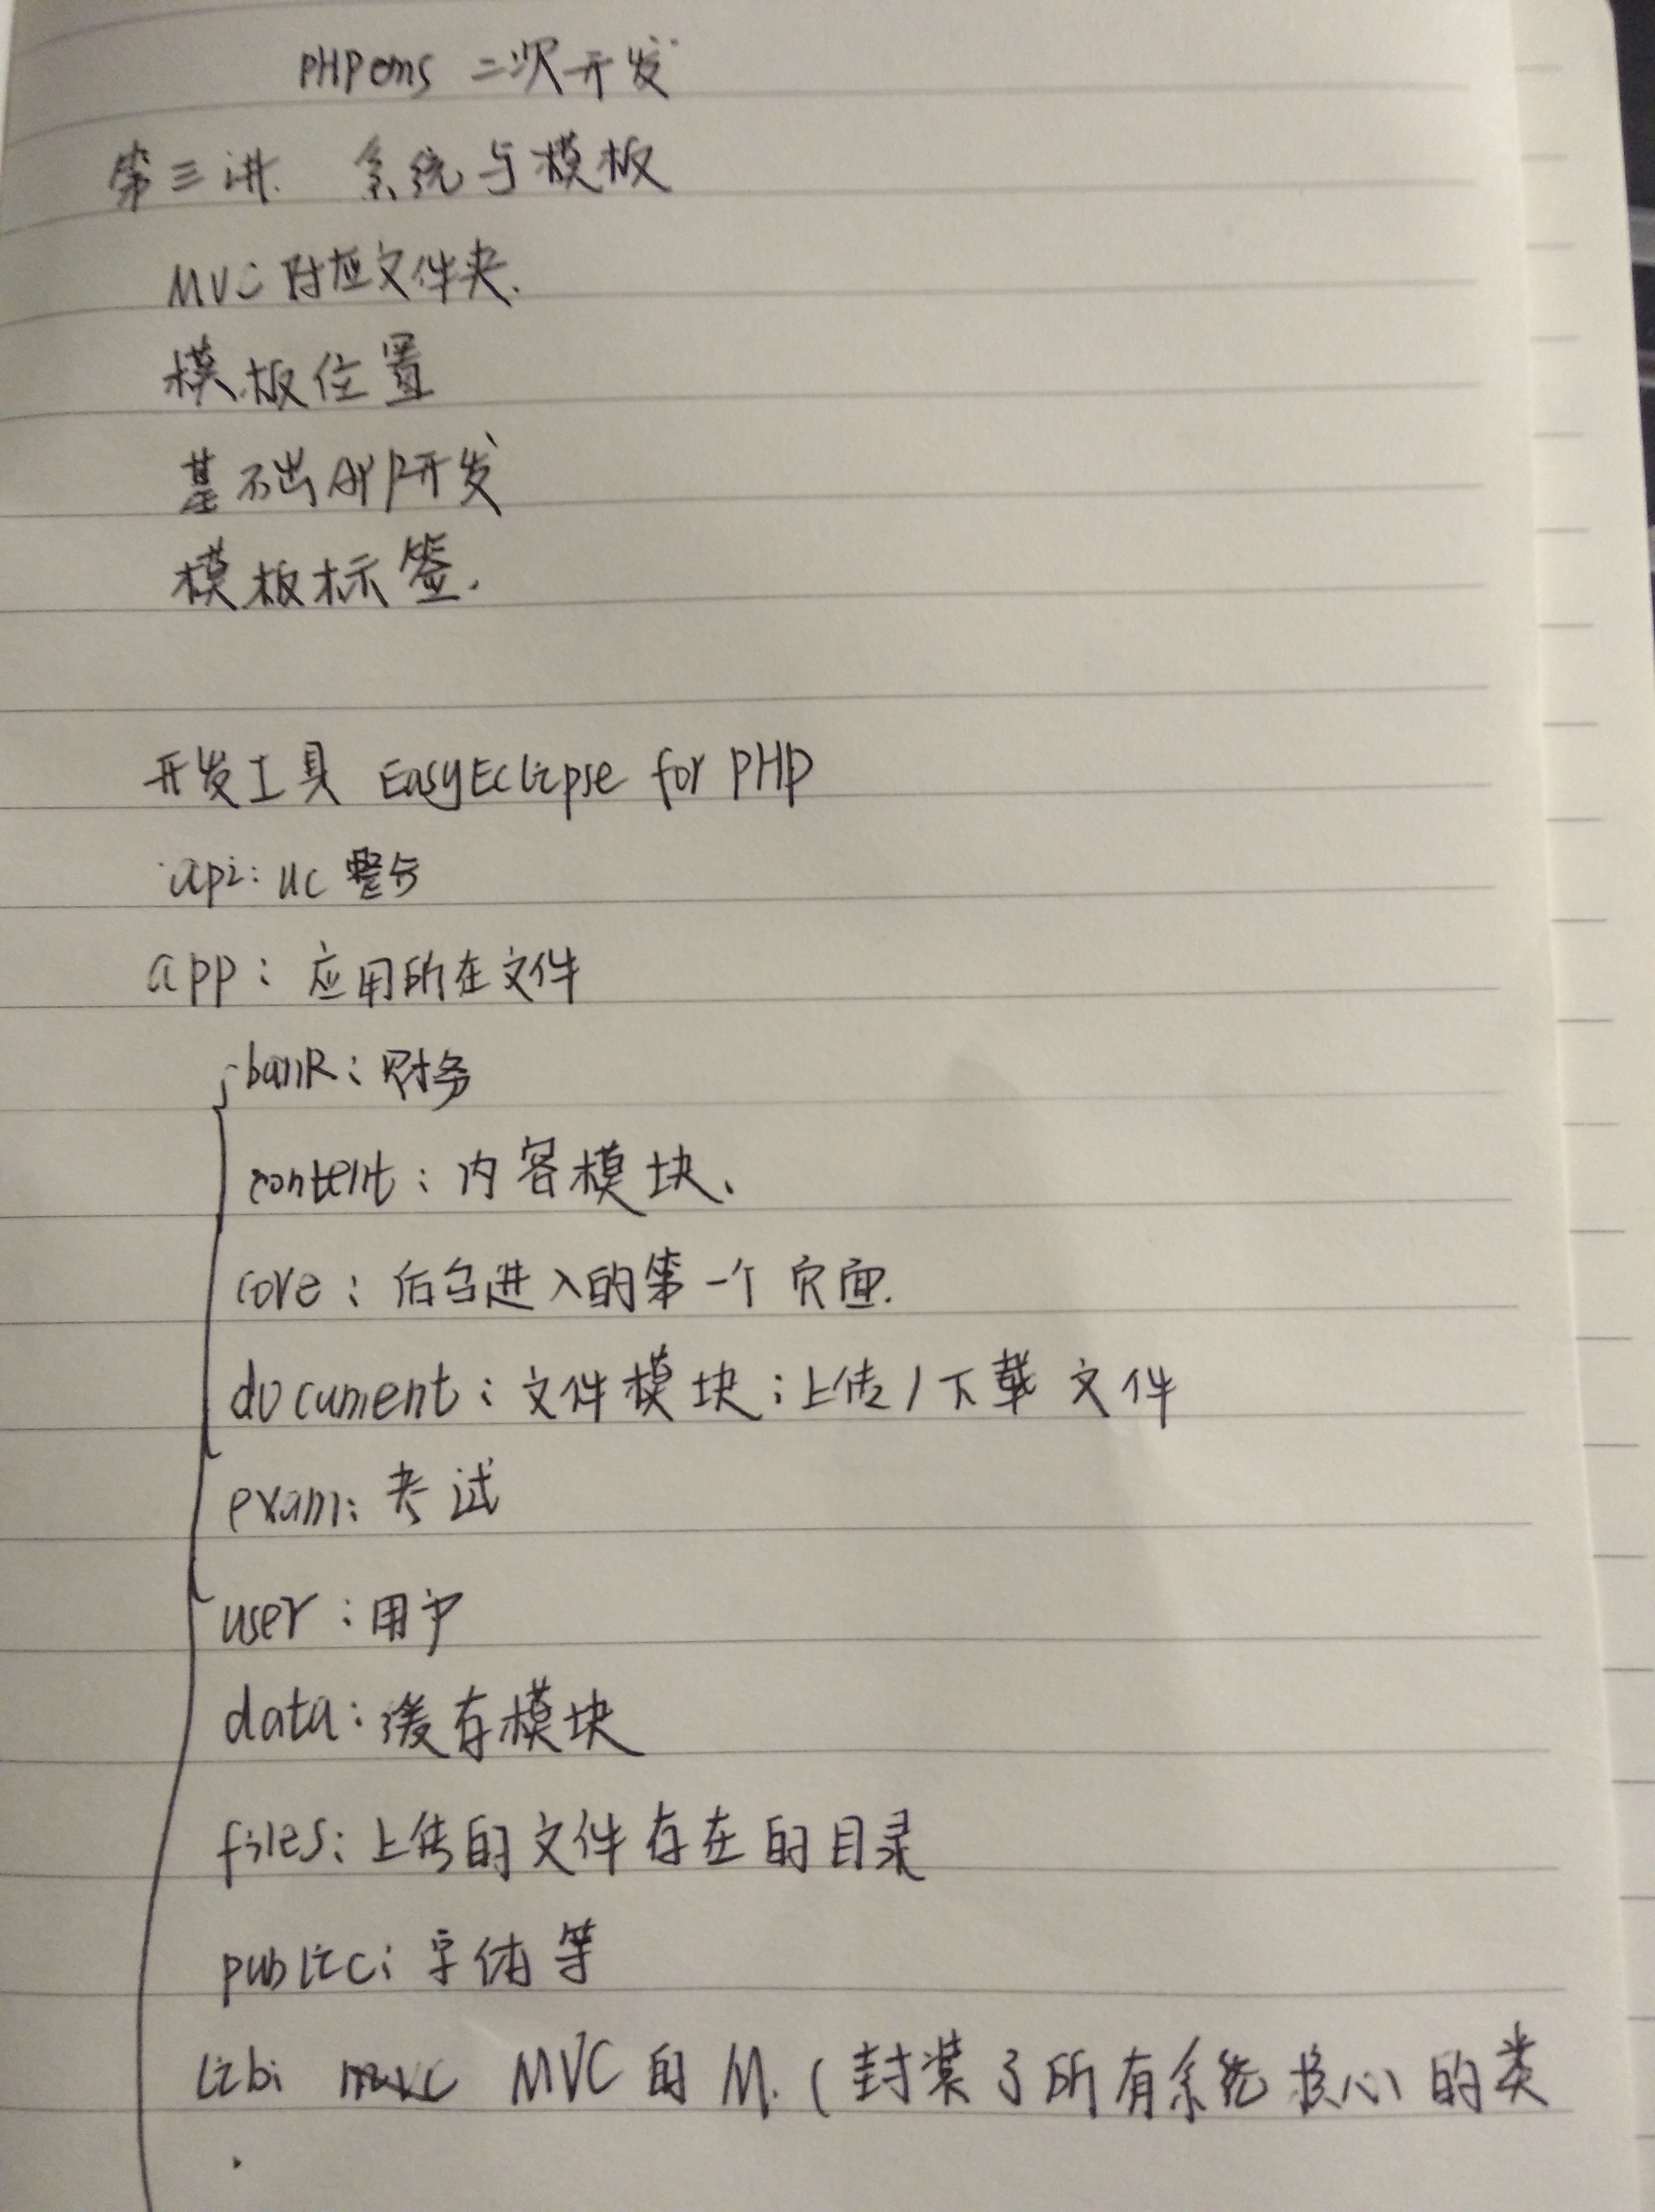 PHPems 二次开发
第三讲. 系统与模板
MVC 对应文件夹.
模板位置
基础APP开发
模板标签.
开发工具 EasyEclipse for PHP
api: uc 整合
app: 应用所在文件
bank: 财务
content: 内容模块、
core: 后台进入的第一个页面.
document: 文件模块;上传/下载文件
exam: 考试
user: 用户
data: 缓存模块
files: 上传的文件存在的目录
public: 字体等
lib: MVC 的 M. (封装了所有系统核心的类